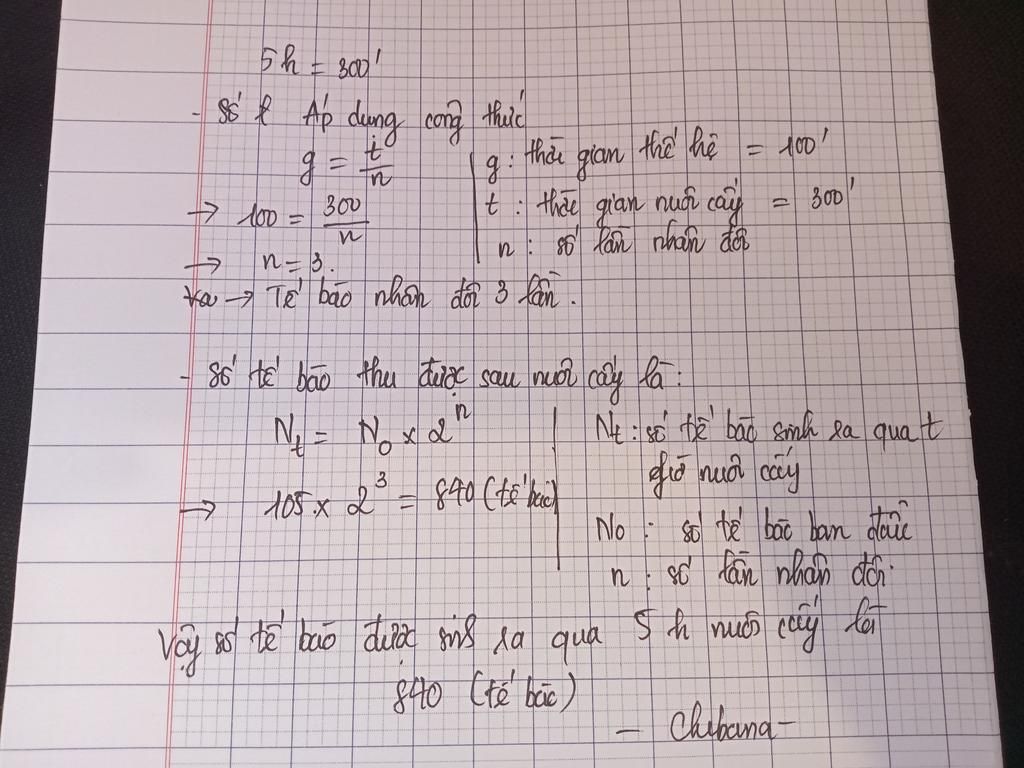 5h = 300'
- Số t Áp dụng công thức
g = t/n | g: thời gian thế hệ = 100'
→ 100 = 300/n | t: thời gian nuôi cấy = 300'
→ n = 3. | n: số lần nhân đôi
Va → Tế bào nhân đôi 3 lần.
- Số tế bào thu được sau nuôi cấy là:
Nt = No × 2^n | Nt: số tế bào sinh ra qua t
giờ nuôi cấy
→ 105 × 2^3 = 840 (tế bào)
No: số tế bào ban đầu
n: số lần nhân đôi.
Vậy số tế bào được sinh ra qua 5h nuôi cấy là
840 (tế bào)
- Chibana -